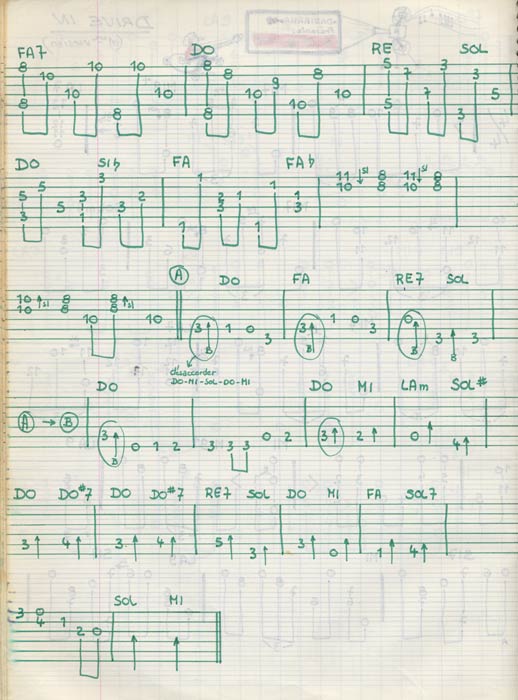 FA7 DO RE SOL
8 10 10 10 8 8 9 8 5 7 3 3
8 10 8 10 8 10 10 10 5 7 3 5
DO SI♭ FA FA♭
5 5 5 3 1 3 3 2 1 1 3 2 1 1 1 3 11 10 ↓SI 8 8 11 10 ↓SI 8 8
Ⓐ DO FA RE7 SOL
10 10 ↑SI 8 8 10 8 8 ↑SI 10 3 B 1 0 3 3 B 1 0 3 0 B 3 3 B 3
désaccorder
DO-MI-SOL-DO-MI
DO DO MI LAm SOL#
Ⓐ → Ⓑ 3 B 0 1 2 3 3 3 0 2 3 2 0 4
DO DO#7 DO DO#7 RE7 SOL DO MI FA SOL7
3 4 3 4 5 3 3 0 1 4
SOL MI
3 0 4 1 2 0